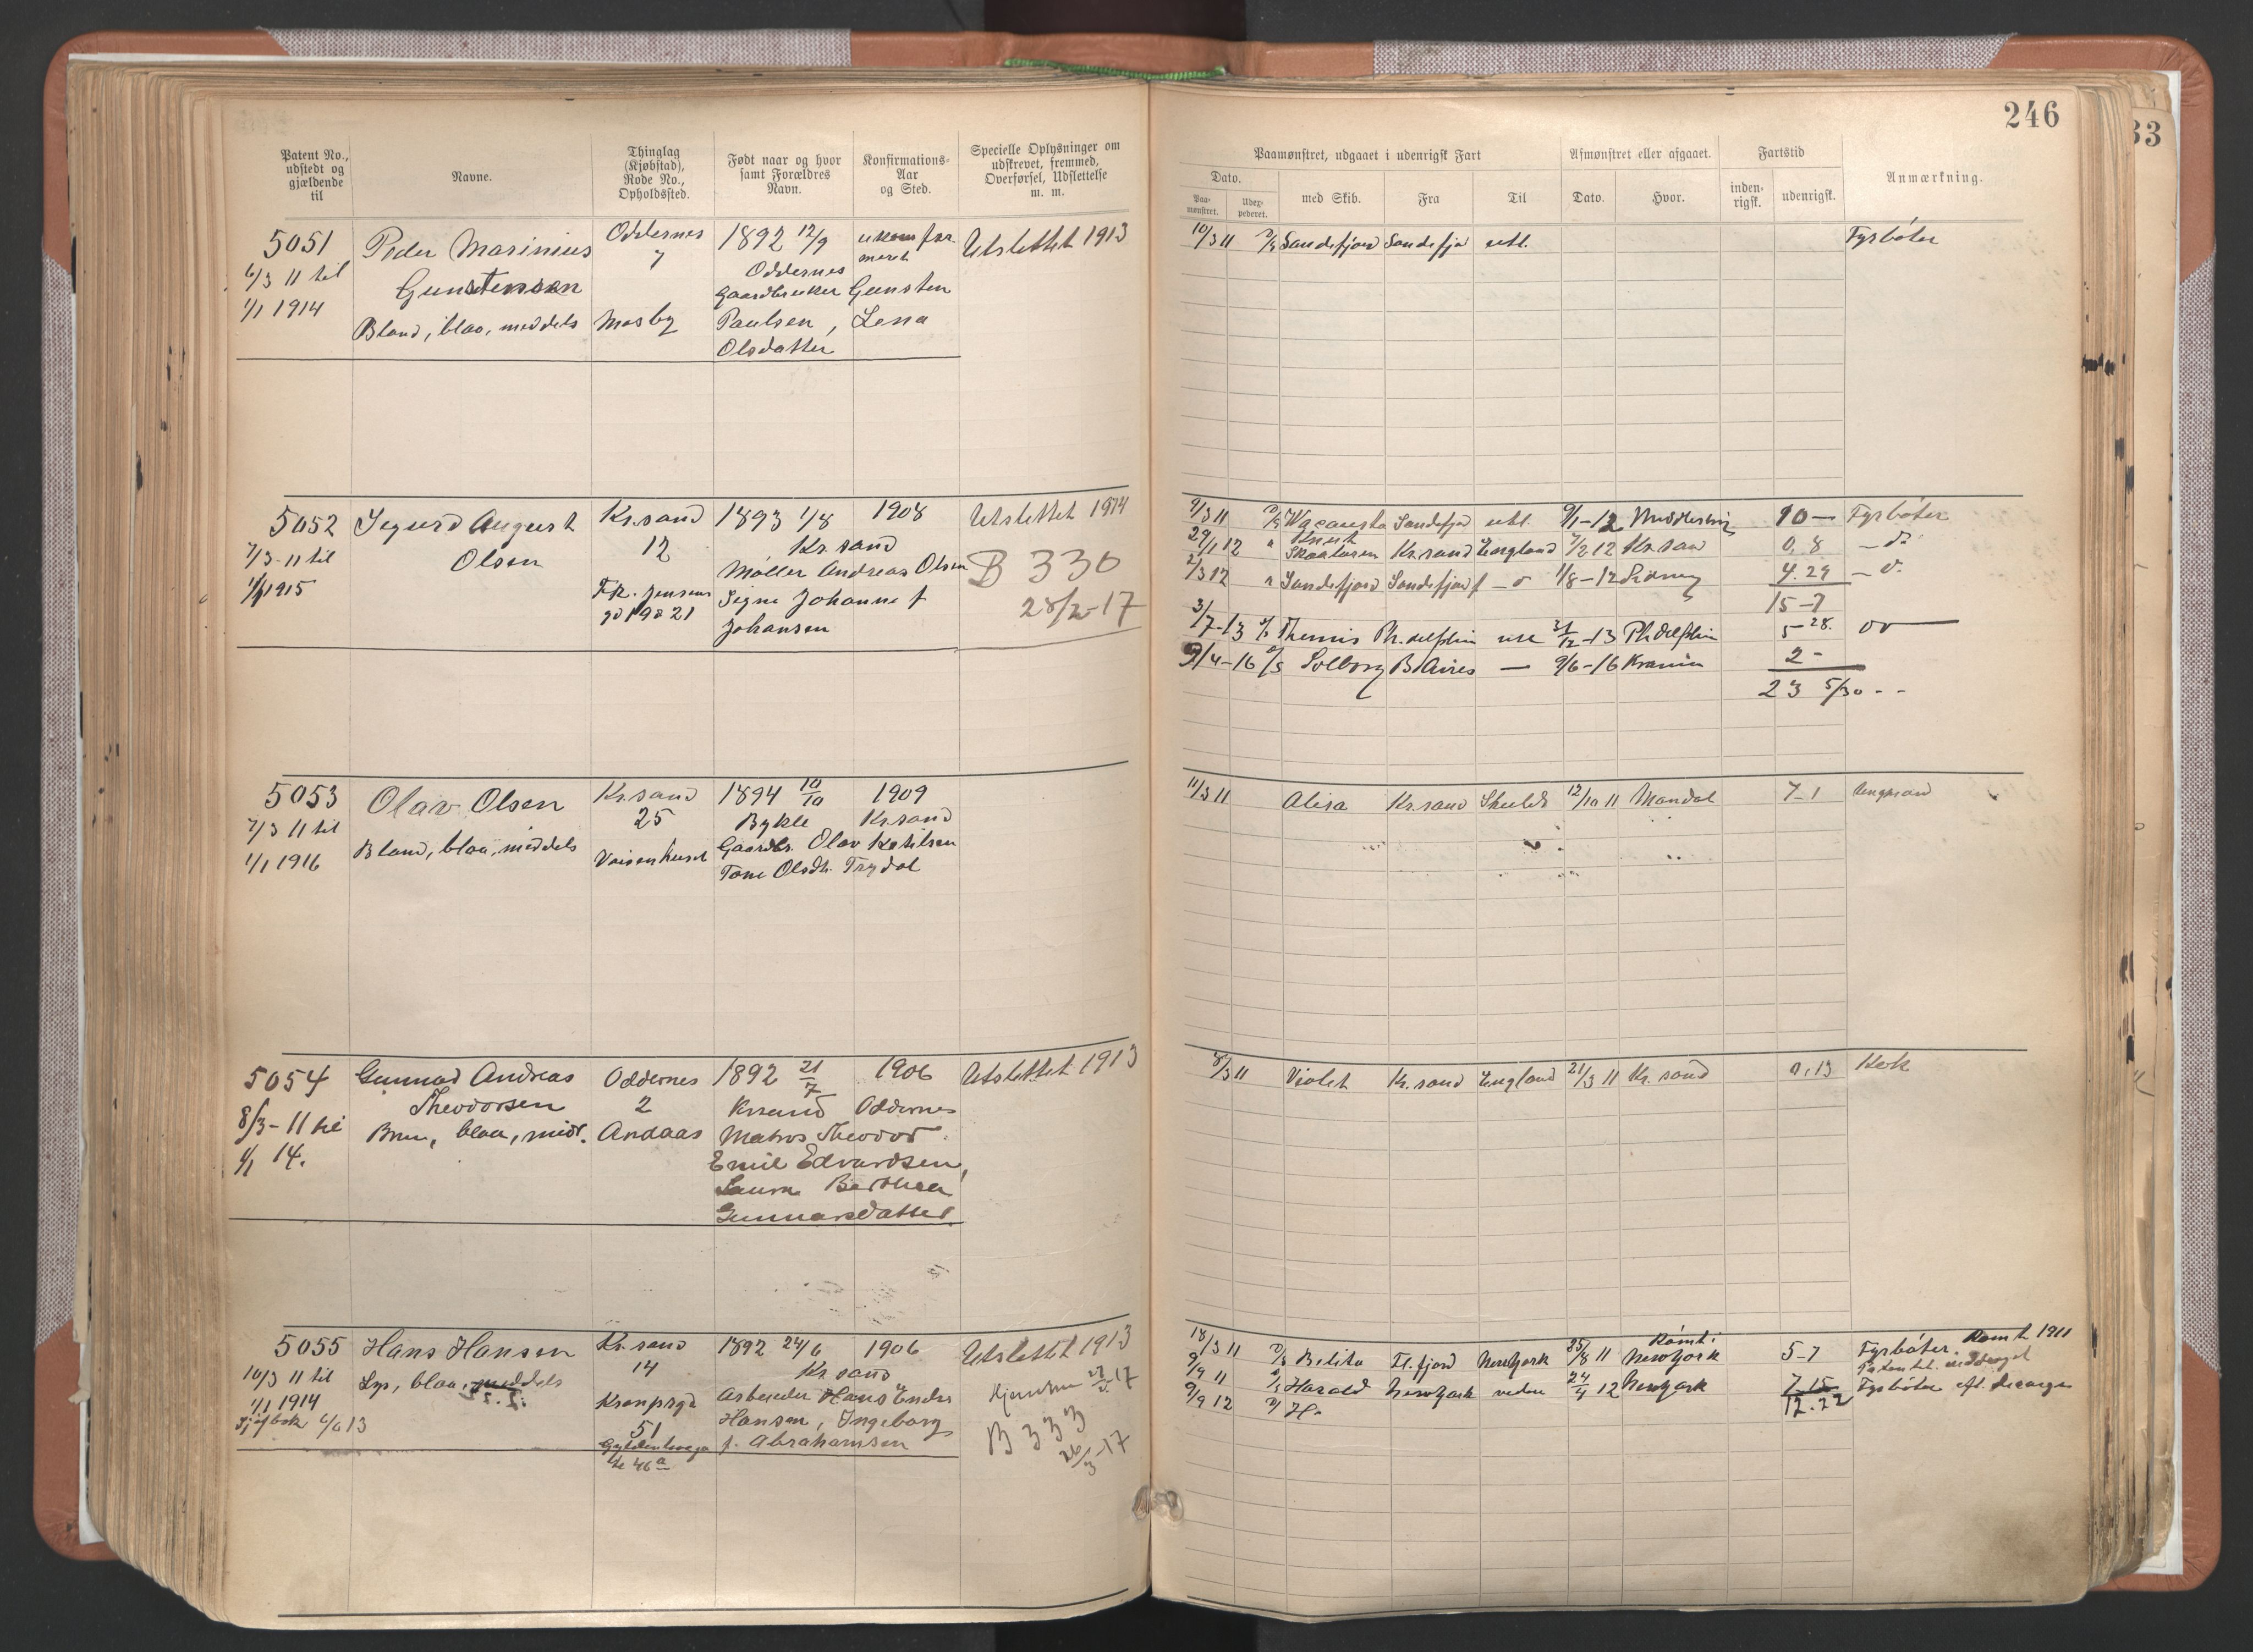 246
33
Patent No., udstedt og gjældende til
Navne.
Thinglag (Kjøbstad), Rode No., Opholdssted.
Født naar og hvor samt Forældres Navn.
Konfirmations-Aar og Sted.
Specielle Oplysninger om udskrevet, fremmed, Overførsel, Udslettelse m. m.
Paamønstret, udgaaet i udenrigsk Fart
Afmønstret eller afgaaet.
Fartstid
Anmærkning.
Dato.
Paa-mønstret.
Udex-pederet.
med Skib.
Fra
Til
Dato.
Hvor.
inden-rigsk.
udenrigsk.
5051 Peder Marinius Oddernes 1892 12/9 ukonfir Utslettet 1913
6/3 11 til Gunstensen 7 Oddernes meret
1/1 1914 Gaardbruker Gunsten
Blond, blaa, middels Mosby Paulsen, Lena
Olsdatter
10/3 11 Sandefjord Sandefjo utl. Fyrbøter
5052 Sigurd August Kr.sand 1893 1/8 1908 Utslettet 1914
7/3-11 til Olsen 12 Kr. sand
1/1 1915 Møller Andreas Olsen B 330
Fr. Jensens Signe Johanne f 28/2-17
gd 19 & 21 Johansen
9/3 11 Sandefjod utl. 9/1-12 10 - Fyrbøter
29/1 12 " Knut Skaaluren Kr.sand England 7/2 12 Kr.san 0,8 - do
2/3 12 " Sandefjord Sandefjord f - o 1/8-12 Sidney 4.29 - o.
15-7
3/7-13 Themis Ph.delfhin utl 31/12-13 Ph.delfhin 5-28.
9/4-16 Solborg B.Aires - 9/6-16 2 -
23 5/30 - -
5053 Olav Olsen Kr.sand 1894 10/10 1909
7/3 11 til 25 Bykle Kr.sand
1/1 1916 Blond, blaa, middels Vaisenhuset Gaardbr. Olav Ketilsen
Tone Olsdtr. Trydal
11/3 11 Alisa Kr.sand Shields 12/10 11 Mandal 7-1 Jungmand
5054 Gunnar Andreas Oddernes 1892 21/7 1906 Utslettet 1913
8/3-11 til Theodorsen 2 Krsand Oddernes
1/1 14. Brun, blaa, midl. Andaas Matros Theodor
Emil Edvardsen,
Laura Berthea
Gunnarsdatter.
8/3 11 Violet Kr.sand England 21/3 11 Kr. sand 0,13 Kok
5055 Hans Hansen Kr.sand 1892 24/6 1906 Utslettet 1913
10/3 11 til Lys, blaa, middels 14 Kr. sand
1/1 1914 Kronprsgd Arbeider Hans Endre
Sjøfbok 6/6 13 51 Hansen, Ingeborg B 333
46a f. Abrahamsen 26/3-17
18/3 11 Belita Fl.fjord NewYork 25/8 11 Rømt i NewYork 5-7 Fyrbøter. Rømt 1911
9/9 11 Harald NewYork veden 24/4 12 NewYork 7-15 Fyrbøter
9/9 12 12.22